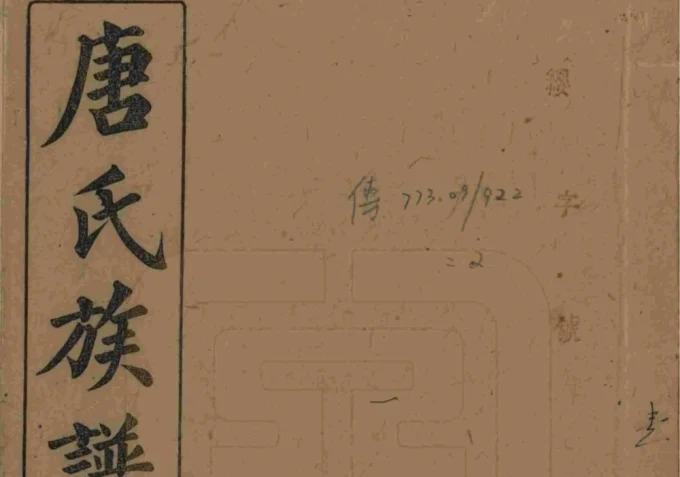 唐氏族譜
傳 773.09/922
=2
字
號